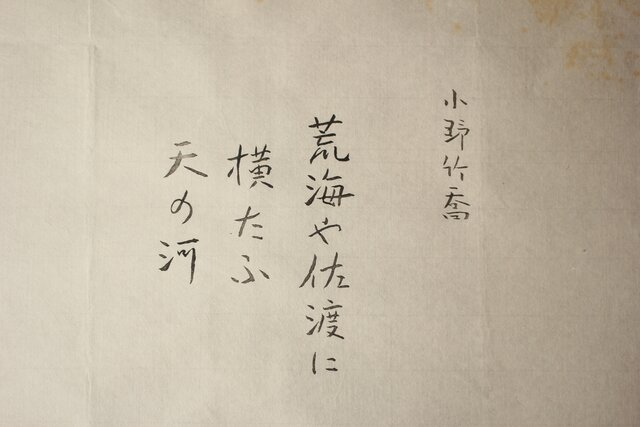 小野竹喬
荒海や佐渡に
横たふ
天の河